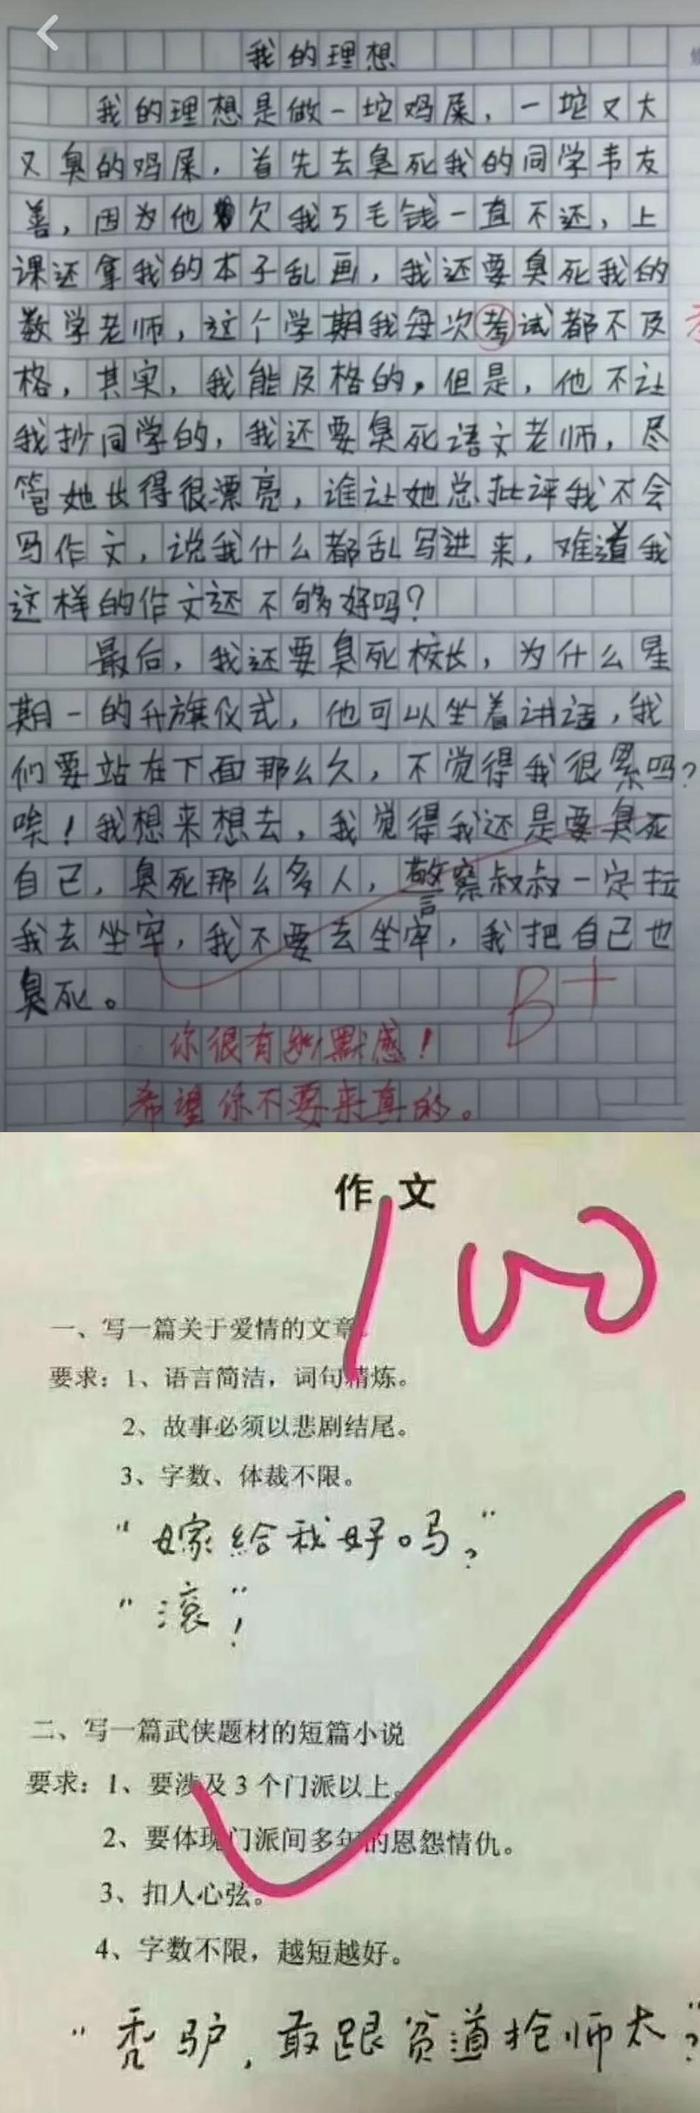 我的理想
我的理想是做一坨鸡屎，一坨又大
又臭的鸡屎，首先去臭死我的同学韦友
善，因为他欠我5毛钱一直不还，上
课还拿我的本子乱画，我还要臭死我的
数学老师，这个学期我每次考试都不及
格，其实，我能及格的，但是，他不让
我抄同学的，我还要臭死语文老师，尽
管她长得很漂亮，谁让她总批评我不会
写作文，说我什么都乱写进来，难道我
这样的作文还不够好吗？
最后，我还要臭死校长，为什么星
期一的升旗仪式，他可以坐着讲话，我
们要站在下面那么久，不觉得我很累吗？
唉！我想来想去，我觉得我还是要臭死
自己，臭死那么多人，警察叔叔一定拉
我去坐牢，我不要去坐牢，我把自己也
臭死。
B+
你很有幽默感！
希望你不要来真的。
作文
100
一、写一篇关于爱情的文章。
要求：1、语言简洁，词句精炼。
2、故事必须以悲剧结尾。
3、字数、体裁不限。
“嫁给我好吗？”
“滚”！
二、写一篇武侠题材的短篇小说
要求：1、要涉及3个门派以上。
2、要体现门派间多年的恩怨情仇。
3、扣人心弦。
4、字数不限，越短越好。
“秃驴，敢跟贫道抢师太”？